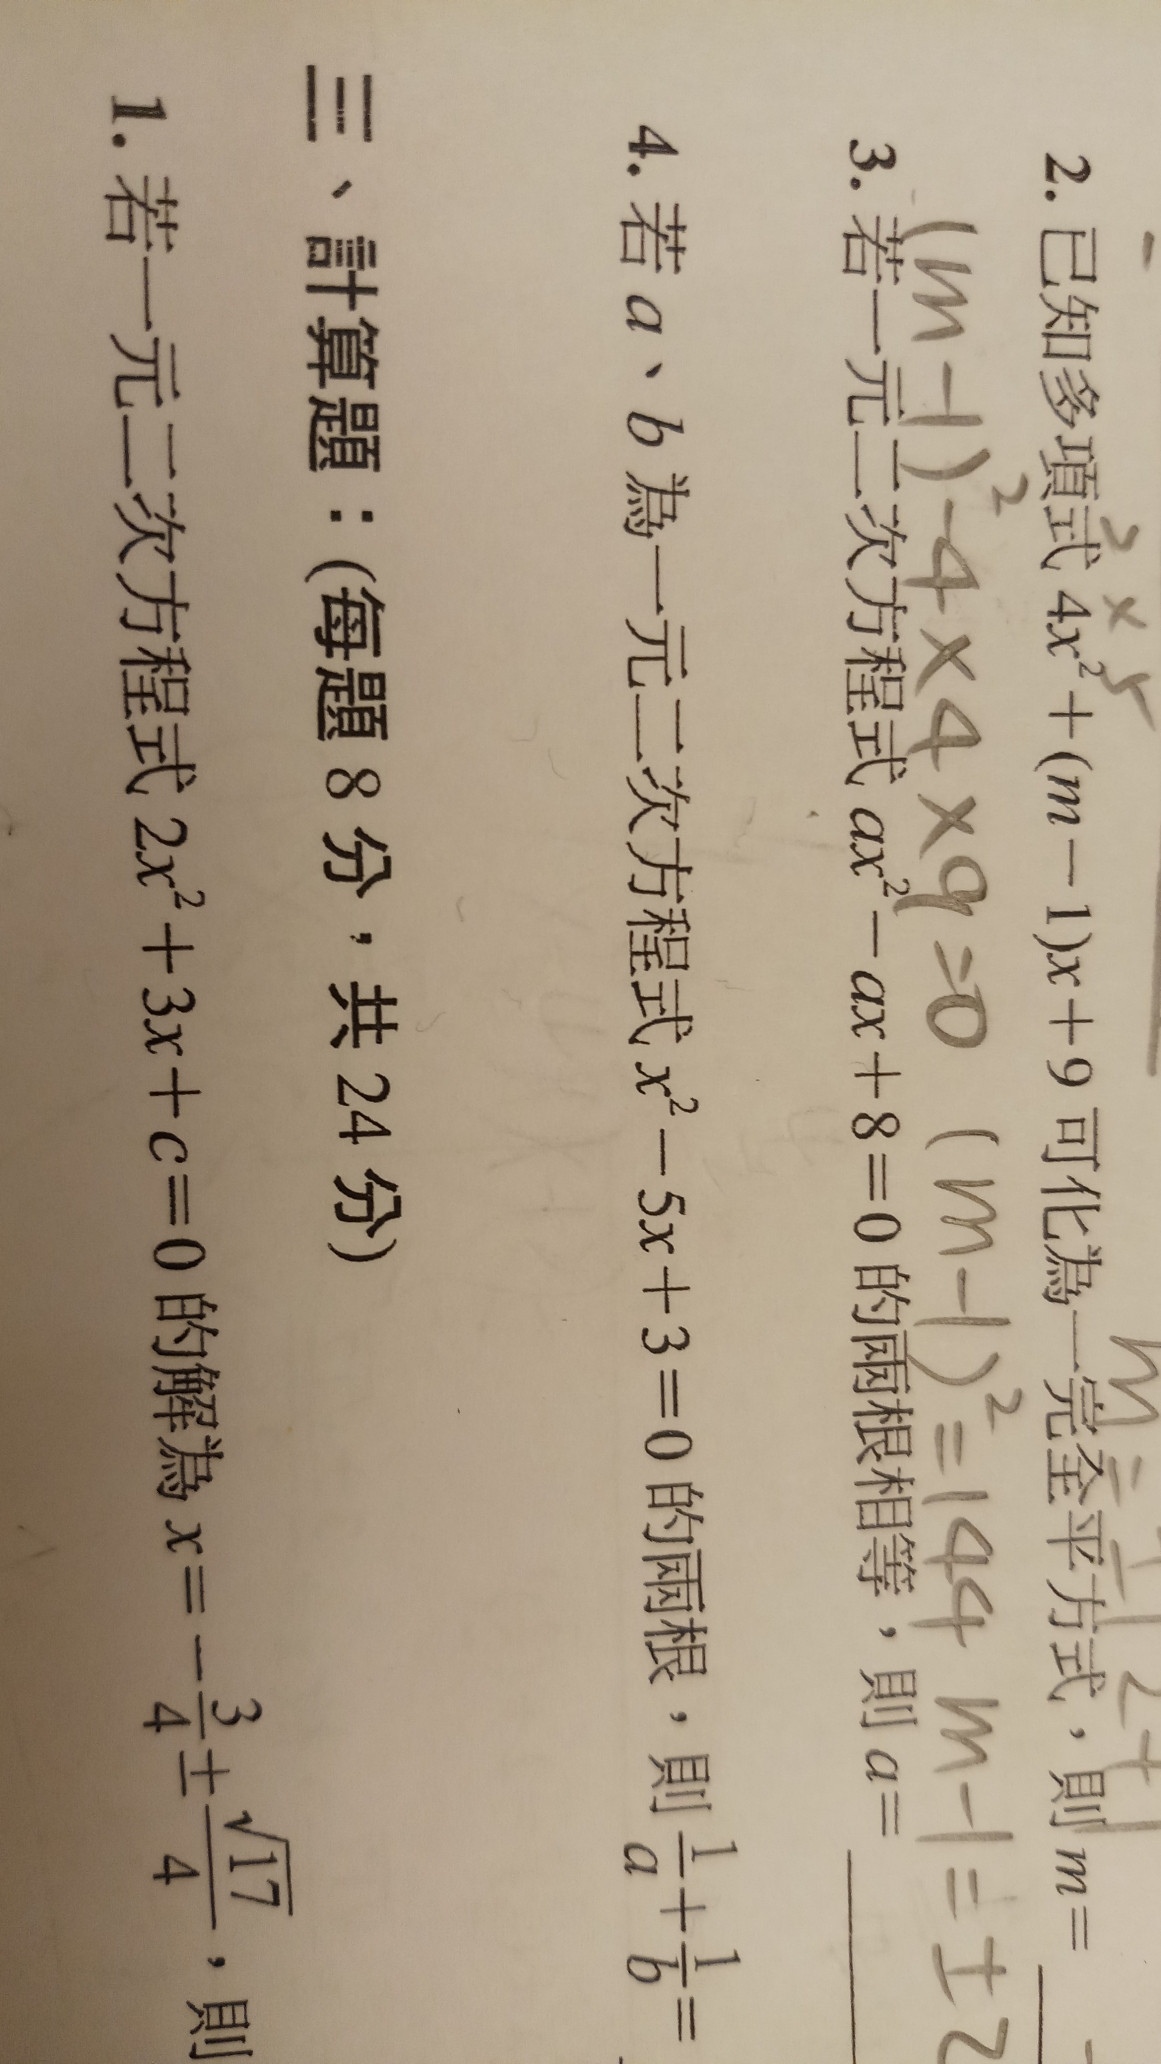 2. 已知多項式 4x²+(m-1)x+9 可化為一完全平方式，則 m=
(m-1)²-4×4×9=0 (m-1)²=144 m-1=±
3. 若一元二次方程式 ax²-ax+8=0 的兩根相等，則 a=
4. 若 a、b 為一元二次方程式 x²-5x+3=0 的兩根，則 1/a+1/b=
三、計算題：(每題 8 分，共 24 分)
1. 若一元二次方程式 2x²+3x+c=0 的解為 x=-3/4±√17/4，則